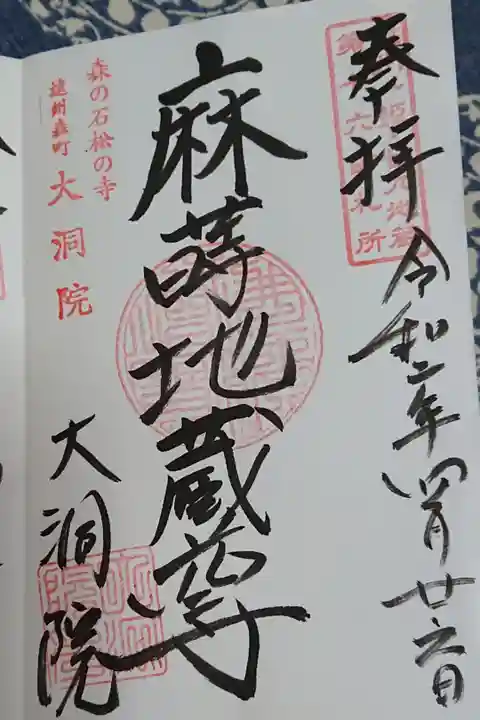 奉拝
令和二年四月廿六日
麻蒔地蔵尊
森の石松の寺
遠州森町 大洞院
大洞院